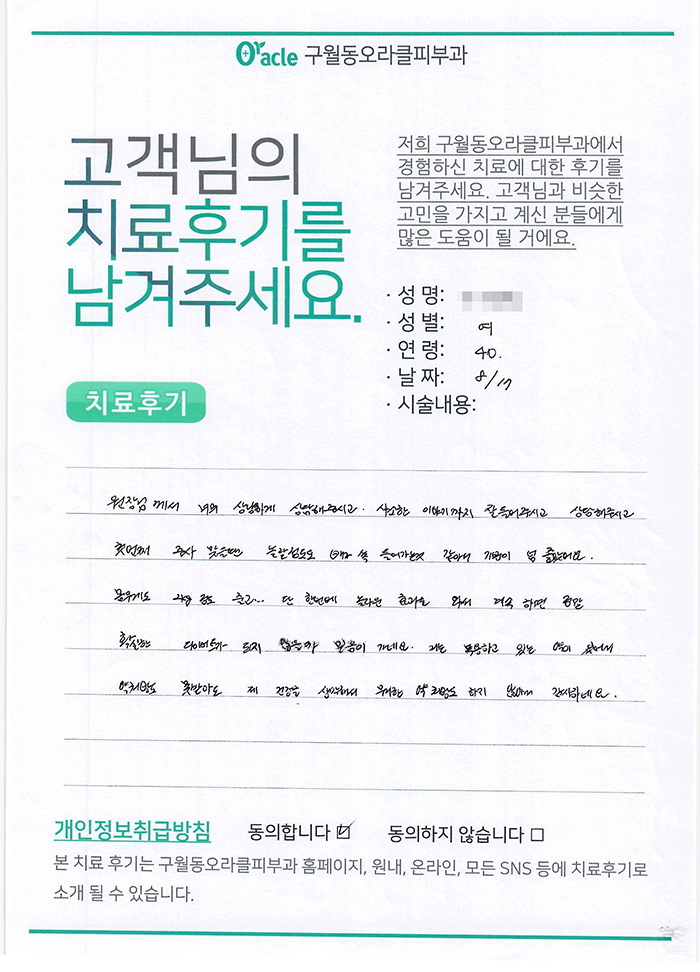 Oracle 구월동오라클피부과
고객님의
치료후기를
남겨주세요.
저희 구월동오라클피부과에서
경험하신 치료에 대한 후기를
남겨주세요. 고객님과 비슷한
고민을 가지고 계신 분들에게
많은 도움이 될 거에요.
· 성 명:
· 성 별: 여
· 연 령: 40.
· 날 짜: 8/17
· 시술내용:
치료후기
원장님께서 너무 상냥하게 상담해주시고. 사소한 이야기까지 잘 들어주시고 상담해주시고
첫번째 주사 맞을땐 놀랄정도로 쏙 들어가는것 같아서 기분이 넘 좋았어요.
몸무게도 정도 줄고... 단 한번에 놀라운 효과를 와서 계속 하면 정말
확실한 다이어트가 되지 않을까 믿음이 가네요. 저는 복용하고 있는 약이 있어서
약처방도 못받아도 제 건강을 생각해서 무리한 약 처방도 하지 않아서 감사하네요.
개인정보취급방침 동의합니다 ☑ 동의하지 않습니다 □
본 치료 후기는 구월동오라클피부과 홈페이지, 원내, 온라인, 모든 SNS 등에 치료후기로
소개 될 수 있습니다.